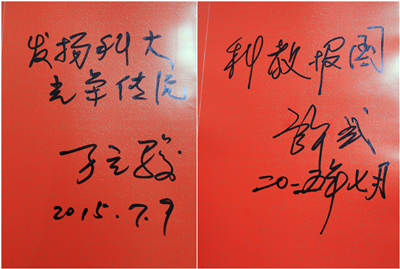 发扬科大
光荣传统
2015.7.9
科教报国
许武
二〇一五年七月